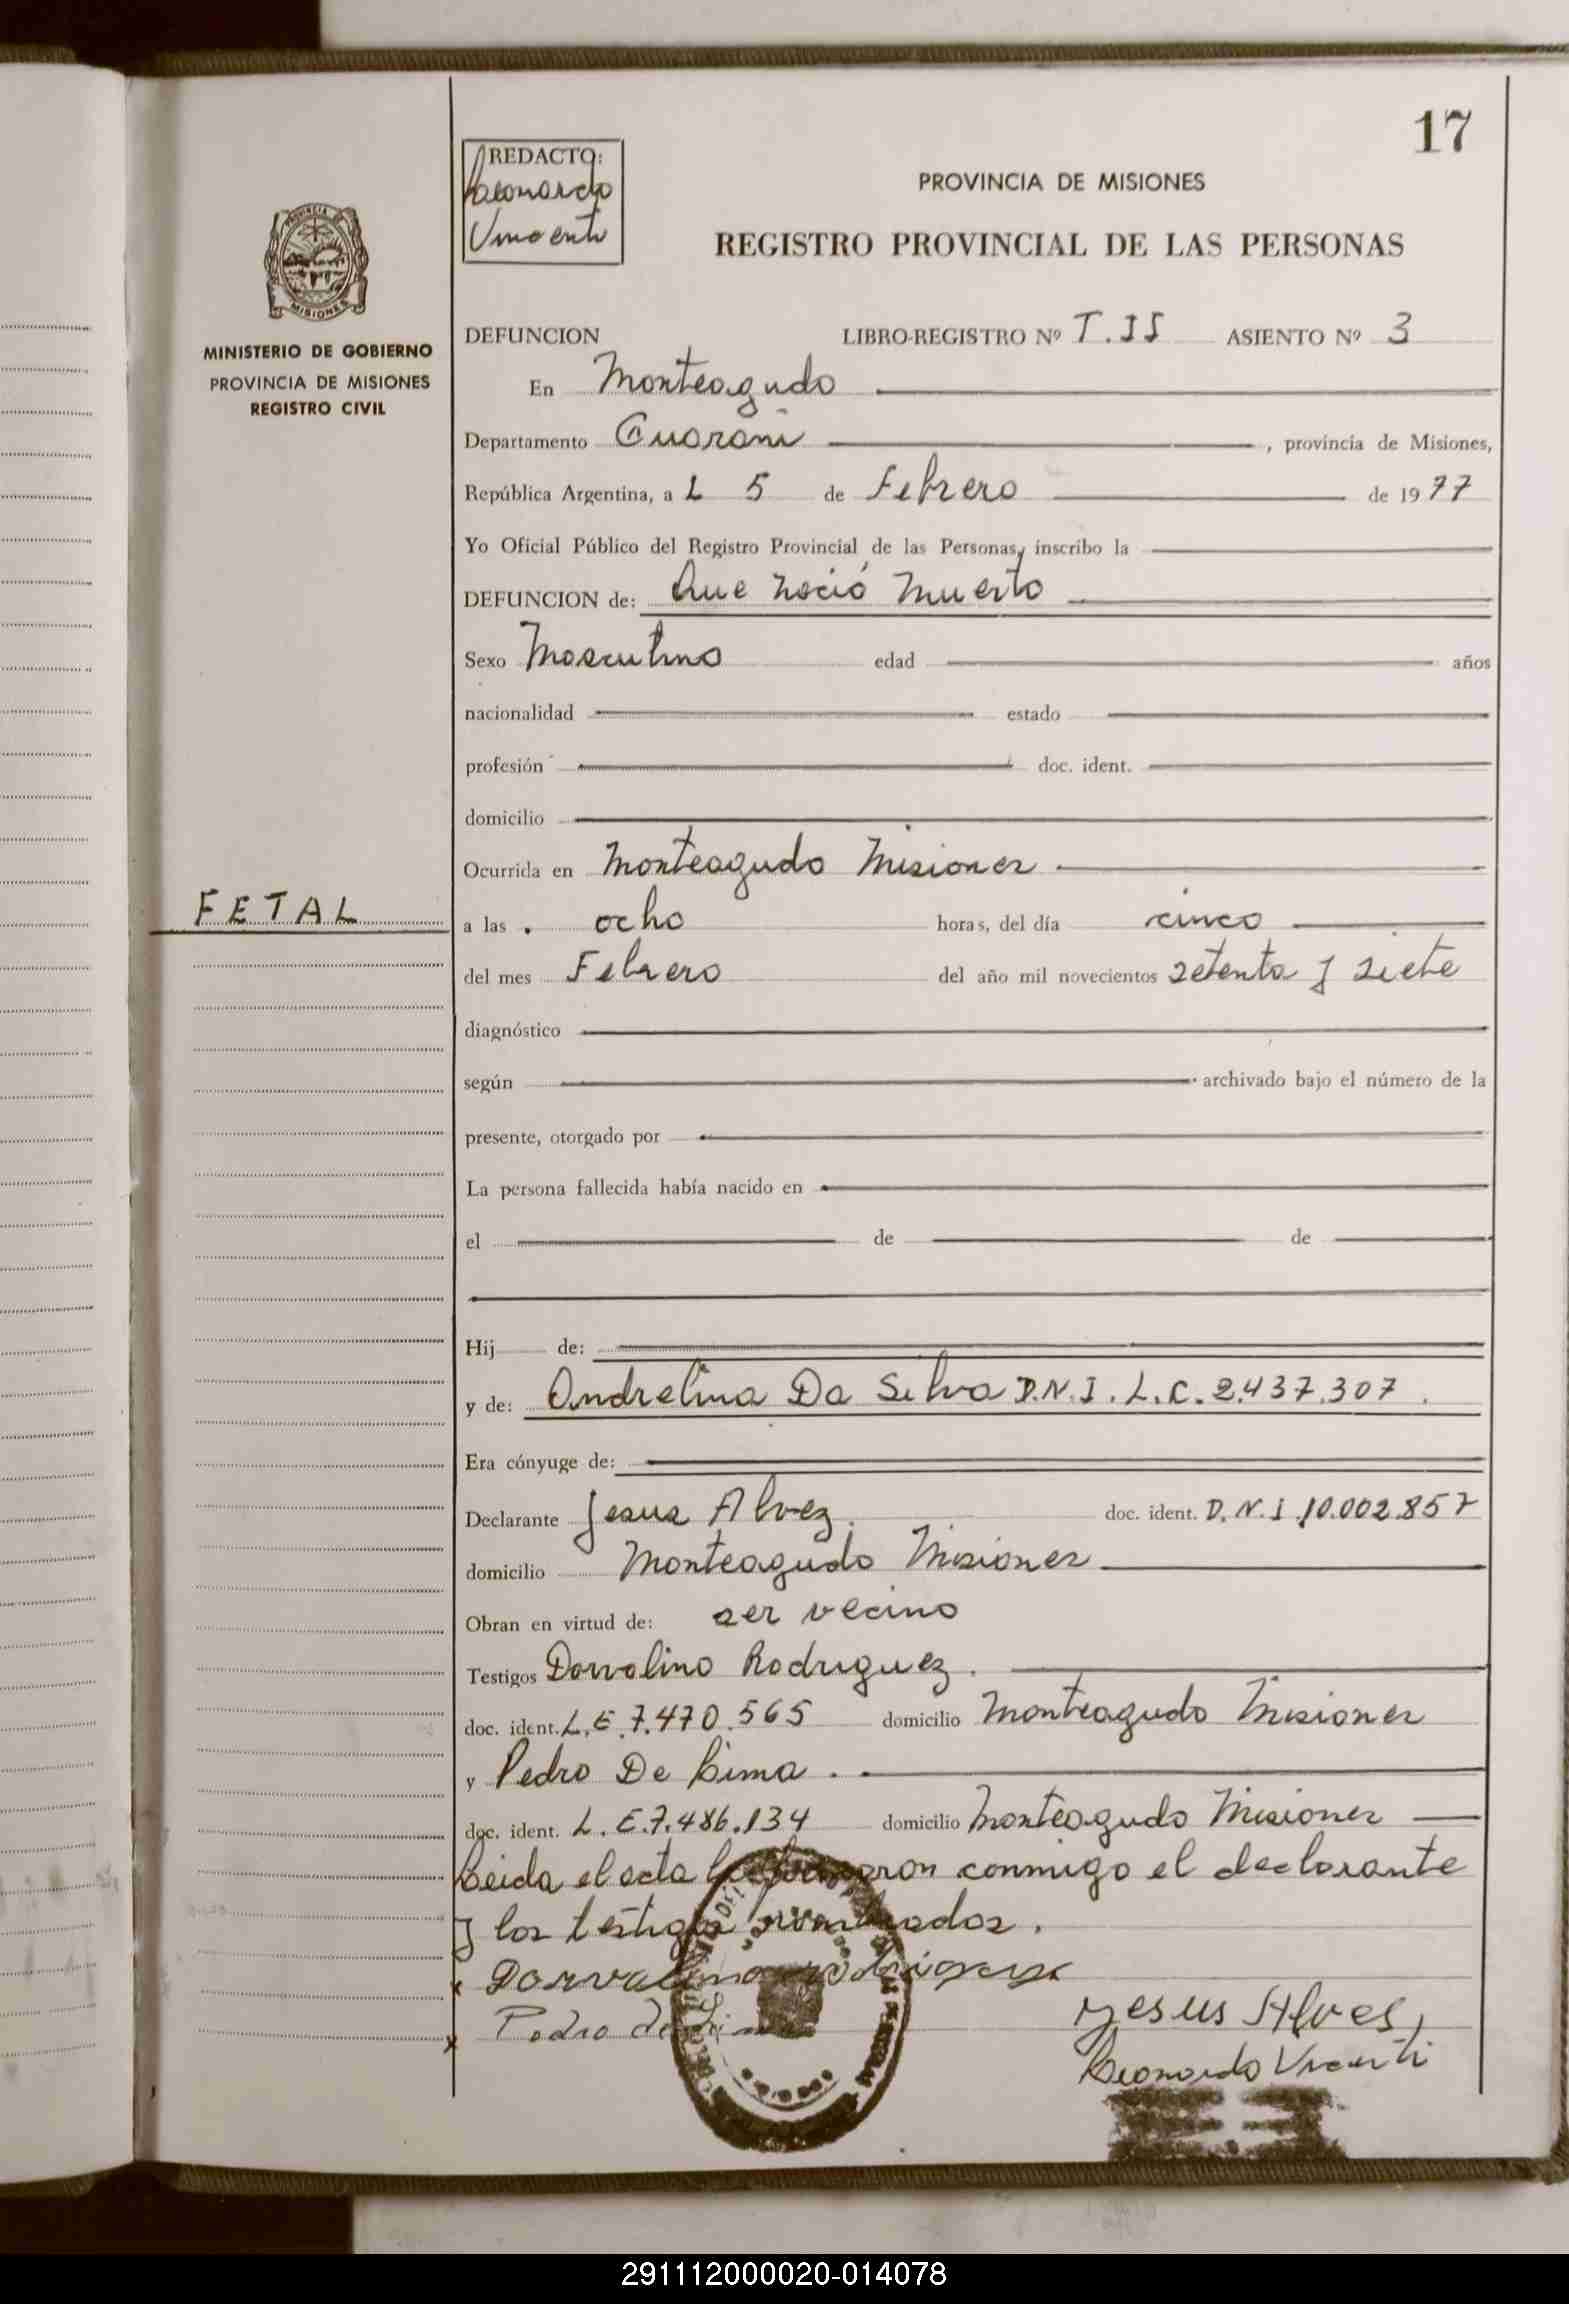 17
REDACTO:
Leonardo
Vincenti
PROVINCIA DE MISIONES
REGISTRO PROVINCIAL DE LAS PERSONAS
MISIONES
MINISTERIO DE GOBIERNO
PROVINCIA DE MISIONES
REGISTRO CIVIL
DEFUNCION LIBRO-REGISTRO Nº T. II ASIENTO Nº 3
En Monteagudo
Departamento Guarani, provincia de Misiones,
República Argentina, a L 5 de Febrero de 1977
Yo Oficial Público del Registro Provincial de las Personas, inscribo la
DEFUNCION de: Que Nació Muerto
Sexo Masculino edad años
nacionalidad estado
profesión doc. ident.
domicilio
Ocurrida en Monteagudo Misiones
FETAL
a las ocho horas, del día cinco
del mes Febrero del año mil novecientos setenta y siete
diagnóstico
según archivado bajo el número de la
presente, otorgado por
La persona fallecida había nacido en
el de de
Hij de:
y de: Andrelina Da Silva D.N.I. L.C. 2.437.307.
Era cónyuge de:
Declarante Jesus Alvez. doc. ident. D.N.I. 10.002.857
domicilio Monteagudo Misiones
Obran en virtud de: ser vecino
Testigos Dorvalino Rodriguez.
doc. ident. L.E. 7.470.565 domicilio Monteagudo Misiones
y Pedro De Lima.
doc. ident. L.E. 7.486.134 domicilio Monteagudo Misiones
Leida el acta la firmaron conmigo el declarante
y los testigos nombrados.
x Dorvalino rodriguez
x Pedro de Lima
Jesus Alves
Leonardo Vincenti
291112000020-014078